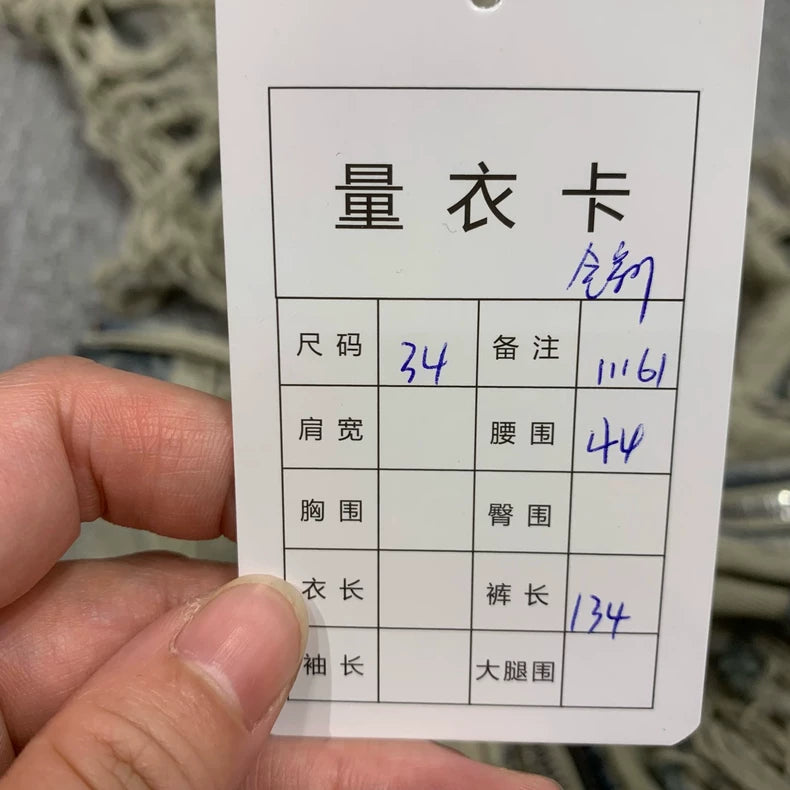 量衣卡
尺码 34 备注 11161
肩宽 腰围 44
胸围 臀围
衣长 裤长 134
袖长 大腿围